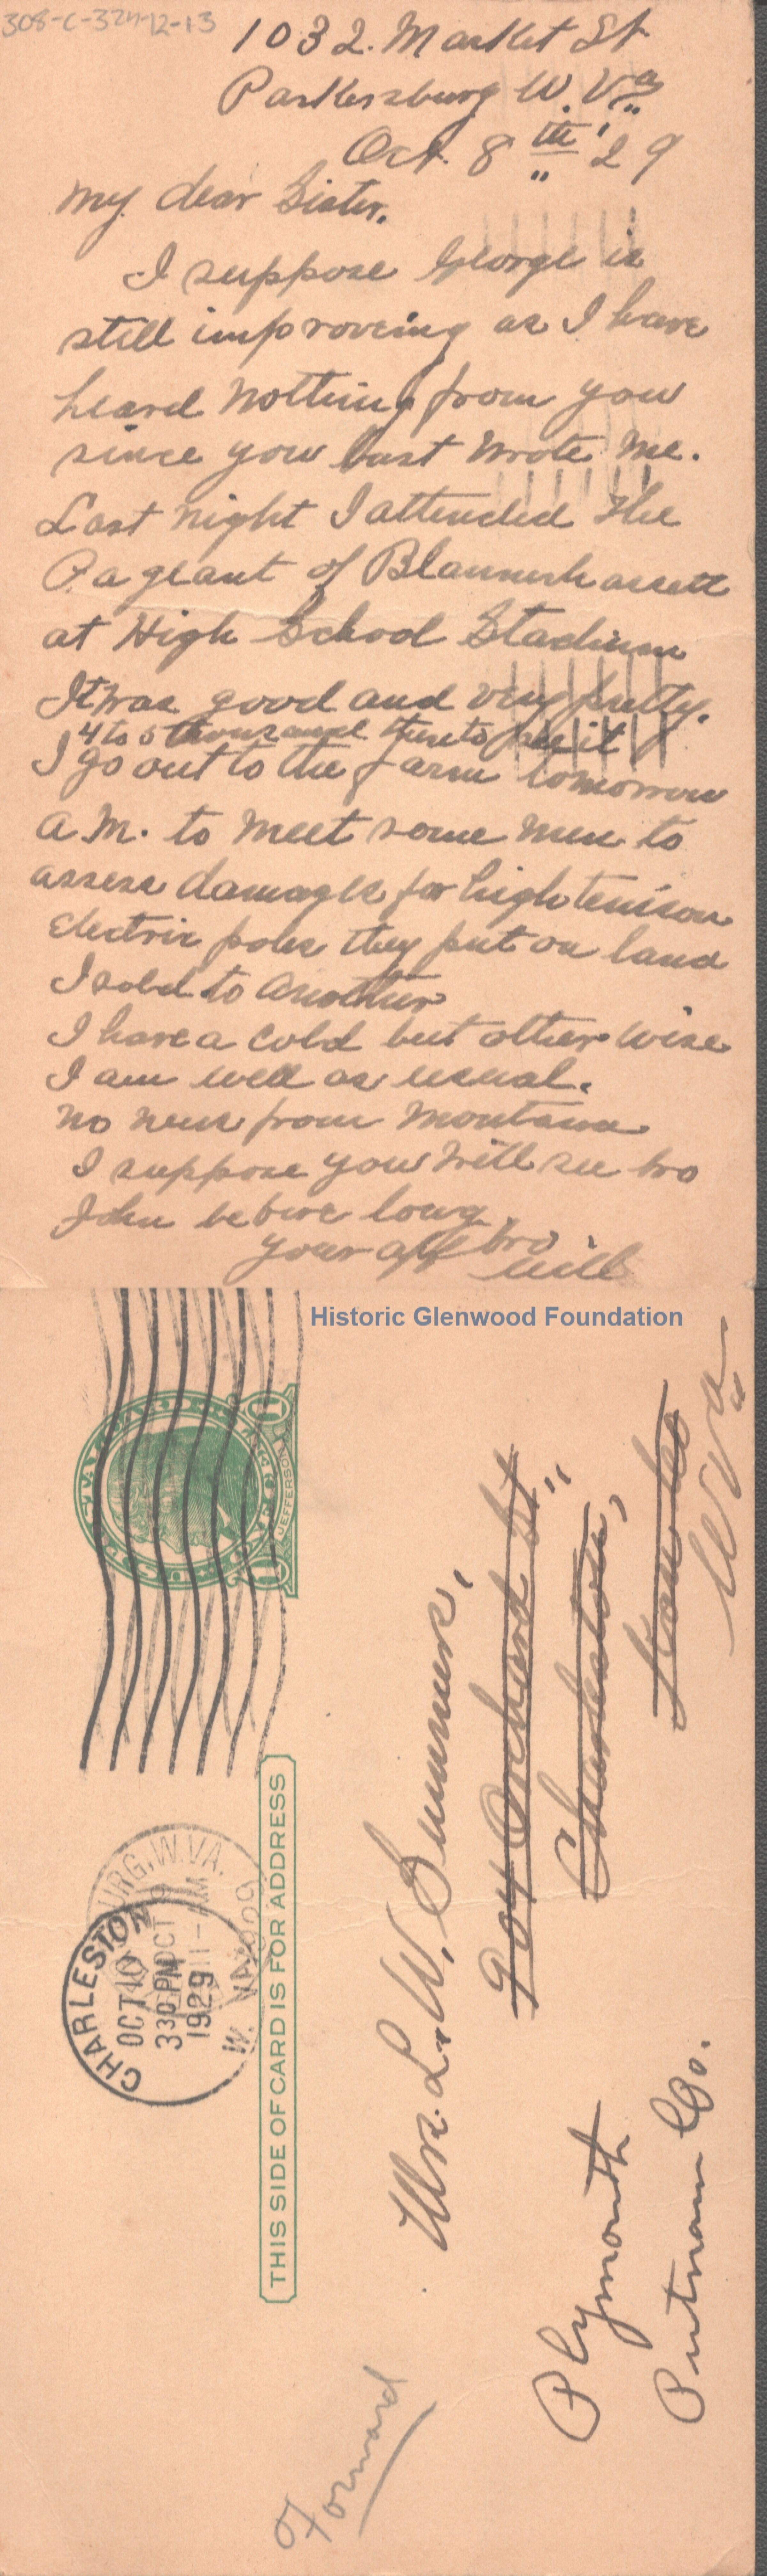 308-C-324-12-13
1032. Market St
Parkersburg W. Va
Oct. 8th '29
My dear Sister.
I suppose George is
still improveing as I have
heard nothing from you
since you last wrote me.
Last night I attended the
Pageant of Blannerhassett
at High School Stadium
It was good and very pretty.
4 to 5 thousand there to see it
I go out to the farm tomorrow
A.M. to meet some men to
assess damages for high tension
Electric poles they put on land
I sold to another
I have a cold but otherwise
I am well as usual.
No news from Montana
I suppose you will see bro
John before long.
your aff bro.
Will
Historic Glenwood Foundation
U.S. POSTAL CARD
1 CENT 1
JEFFERSON
URG, W. VA.
OCT 9
11- AM
1929
CHARLESTON
OCT 10
330 PM
1929
W. VA
THIS SIDE OF CARD IS FOR ADDRESS
Mrs. L. W.
904 Orchard St.
Charleston,
W Va
Plymouth
Putnam Co.
Forward